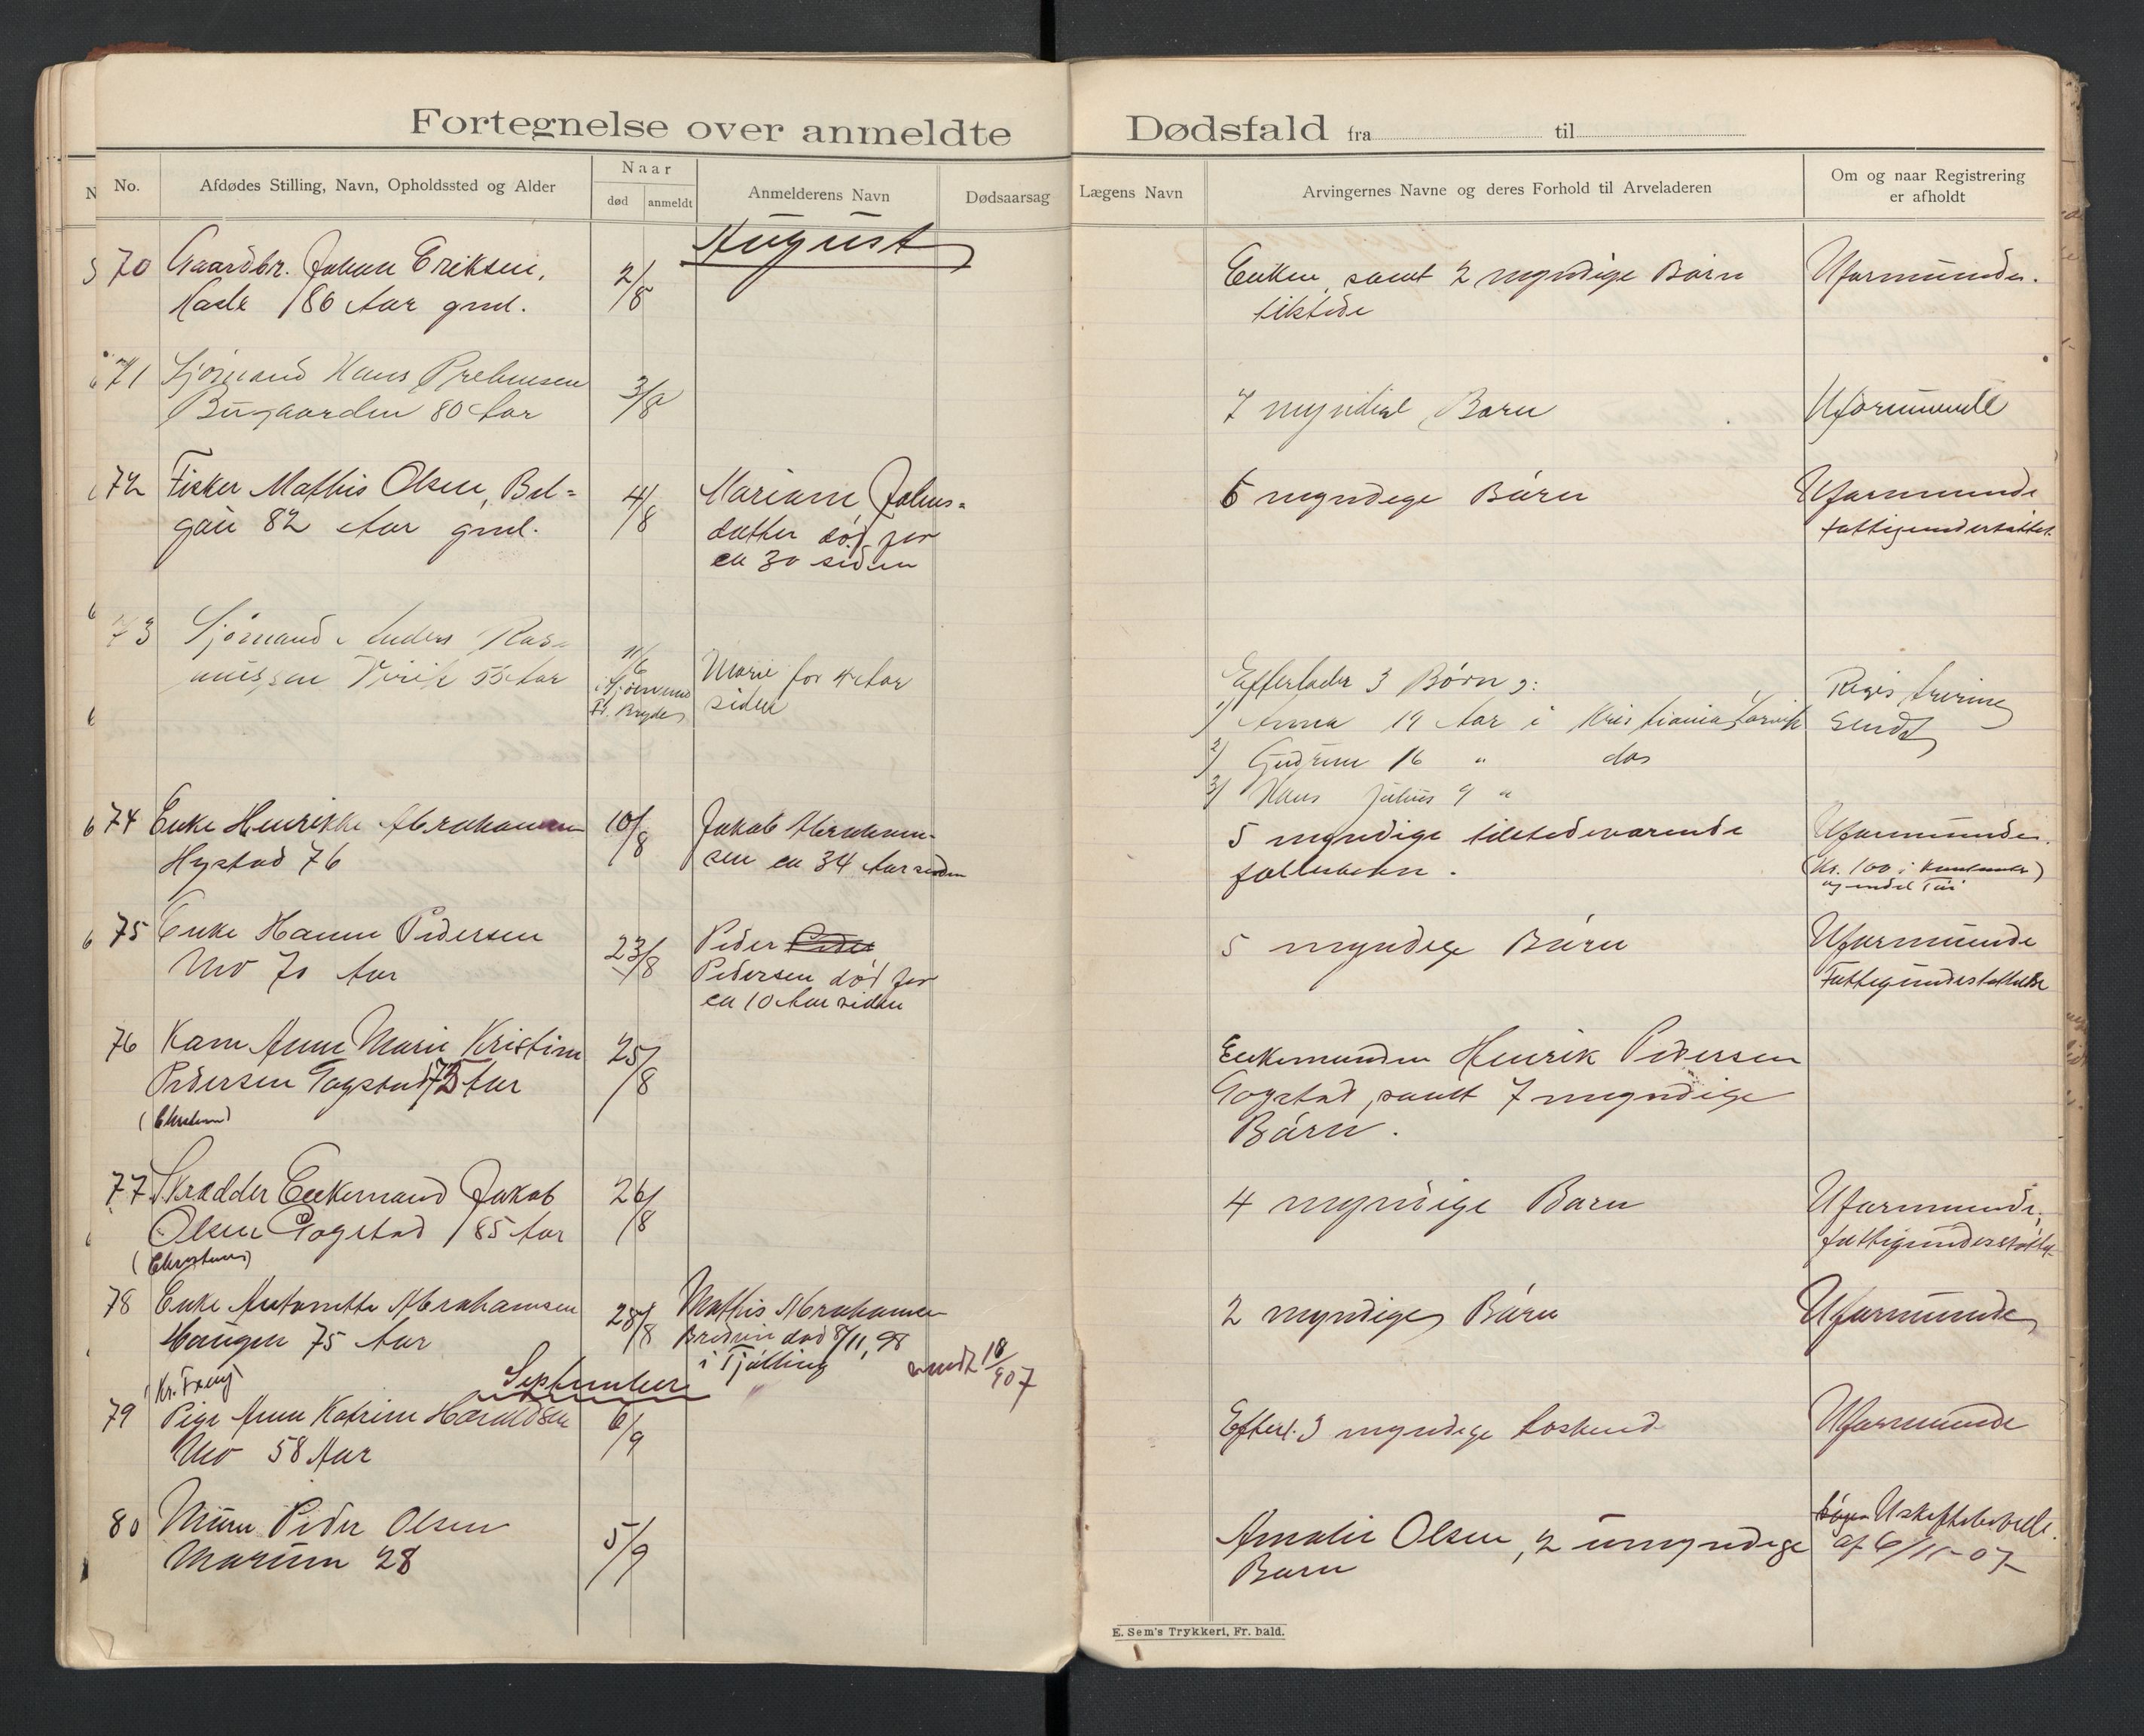 Fortegnelse over anmeldte Dødsfald fra til
No.
Afdødes Stilling, Navn, Opholdssted og Alder
Naar
død
anmeldt
Anmelderens Navn
Dødsaarsag
Lægens Navn
Arvingernes Navne og deres Forhold til Arveladeren
Om og naar Registrering
er afholdt
August
70 Gaardbr. Johan Eriksen,
86 Aar gml.
2/8
Enken, samt 2 myndige Børn
Uformuende.
71 Sjømand Hans
Bugaarden 80 Aar
3/8
7 myndige Børn
Uformuende
72 Fisker Mathis Olsen, Bel=
gau 82 Aar gml.
4/8
Mariane Johns=
datter død for
ca 30 siden
6 myndige Børn
Uformuende
fattigunderstøttet.
73 Sjømand Anders Ras-
mussen Virik 55 Aar
11/6
Fr. Bryde
Marie for 4 Aar
siden
Efterlader 3 Børn ɔ:
1) Anna 19 Aar i Kristiania Larvik
2) Gudrun 16 " do
3) Hans Julius 9 "
Registrering
sendt
74 Enke Henrikke Abrahamsen
Hystad 76
10/8
Jakob Abraham-
sen ca 34 Aar siden
5 myndige tilstedeværende
Uformuende.
(Kr. 100 i
og endel
75 Enke Hanne Pedersen
Mo 70 Aar
23/8
Peder Peder
Pedersen død for
ca 10 Aar siden
5 myndige Børn
Uformuende
Fattigunderstøttelse
76 Kone Anne Marie Kristine
Pedersen Gogstad 73 Aar
25/8
Enkemanden Henrik Pedersen
Gogstad, samt 7 myndige
Børn.
77 Skrædder Enkemand Jakob
Olsen Gogstad 85 Aar
26/8
4 myndige Børn
Uformuende,
fattigunderstøttet
78 Enke Antonette Abrahamsen
Haugen 75 Aar
28/8
Mathis Abrahamsen
død 8/11, 98
i Tjølling
sendt 18/907
2 myndige Børn
Uformuende
September
79 Pige Anne Katrine Haraldsen
Mo 58 Aar
6/9
Efterl. 3 myndige Søskend
Uformuende
80 Murer Peder Olsen
Marum 28
5/9
Amalie Olsen, 2 umyndige
Børn
af 6/11-07
E. Sem's Trykkeri, Fr. hald.